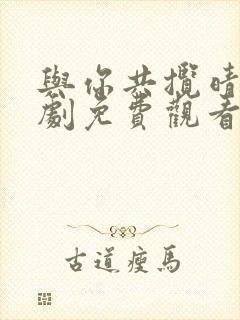 與你共攬晴
劇免費觀看
古道瘦馬